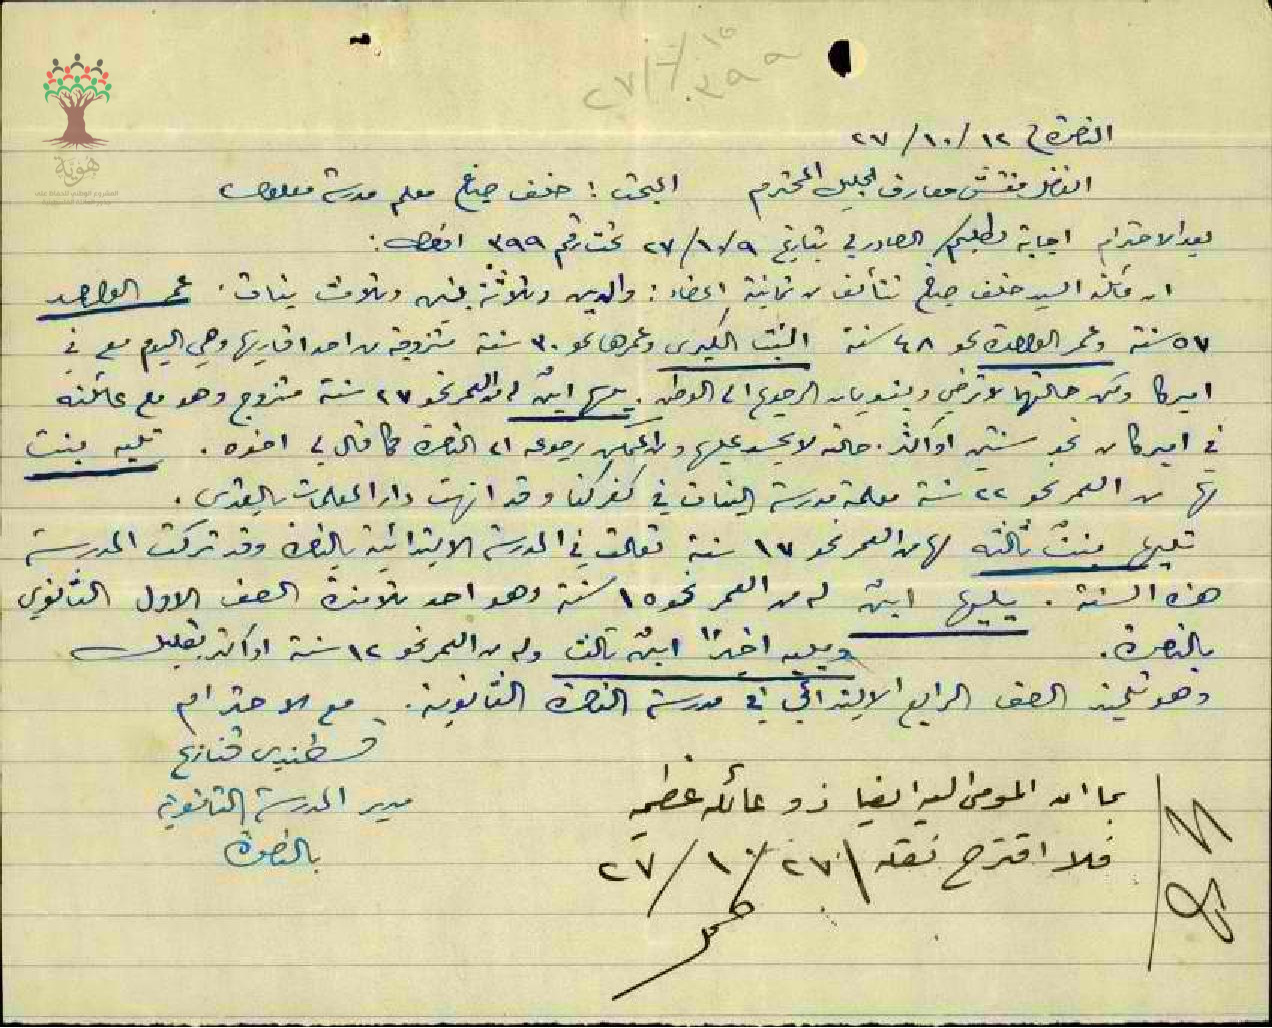 ٣٩٩
٢٧/
الناصرة في ١٢/١٠/٢٧
الفاضل مفتش معارف الجليل المحترم المبحث: حنف صباغ معلم مدرسة معلول
بعد الاحترام اجابة لطلبكم الصادر في بتاريخ ٩/١٠/٢٧ تحت رقم ٣٩٩ افيد:
ان عائلة السيد حنف صباغ تتألف من ثمانية اعضاء: والدين وثلاثة بنين وثلاث بنات. عمر الوالد
٥٧ سنة وعمر الوالدة نحو ٤٨ سنة البنت الكبرى وعمرها نحو ٣٠ سنة متزوجة من احد اقاربها وهي اليوم معه في
اميركا ولكن حالتهما لا ترضي وينويان الرجوع الى الوطن. يليها ابن له من العمر نحو ٢٧ سنة متزوج وهو مع عائلته
في اميركا من نحو سنتين او اكثر. حالته لا يحسد عليها ومن الممكن رجوعه الى الناصرة كما قال لي اخوه. تليه بنت
لها من العمر نحو ٢٢ سنة معلمة مدرسة البنات في كفركنا وقد انهت دار المعلمات بالقدس.
تليها بنت ثالثة لها من العمر نحو ١٧ سنة تعلمت في المدرسة الابتدائية بالناصرة وقد تركت المدرسة
هذه السنة. يليها ابن له من العمر نحو ١٥ سنة وهو احد تلامذة الصف الاول الثانوي
بالناصرة. ويليه اخيرًا ابن ثالث وله من العمر نحو ١٢ سنة او اكثر بقليل
وهو تلميذ الصف الرابع الابتدائي في مدرسة الناصرة الثانوية. مع الاحترام
قسطندي قنازع
مدير المدرسة الثانوية
بالناصرة
بما ان المومى اليه ايضا ذو عائلة عظيمة
فلا اقترح نقله ٢٧/١٠/٢٧
هوية